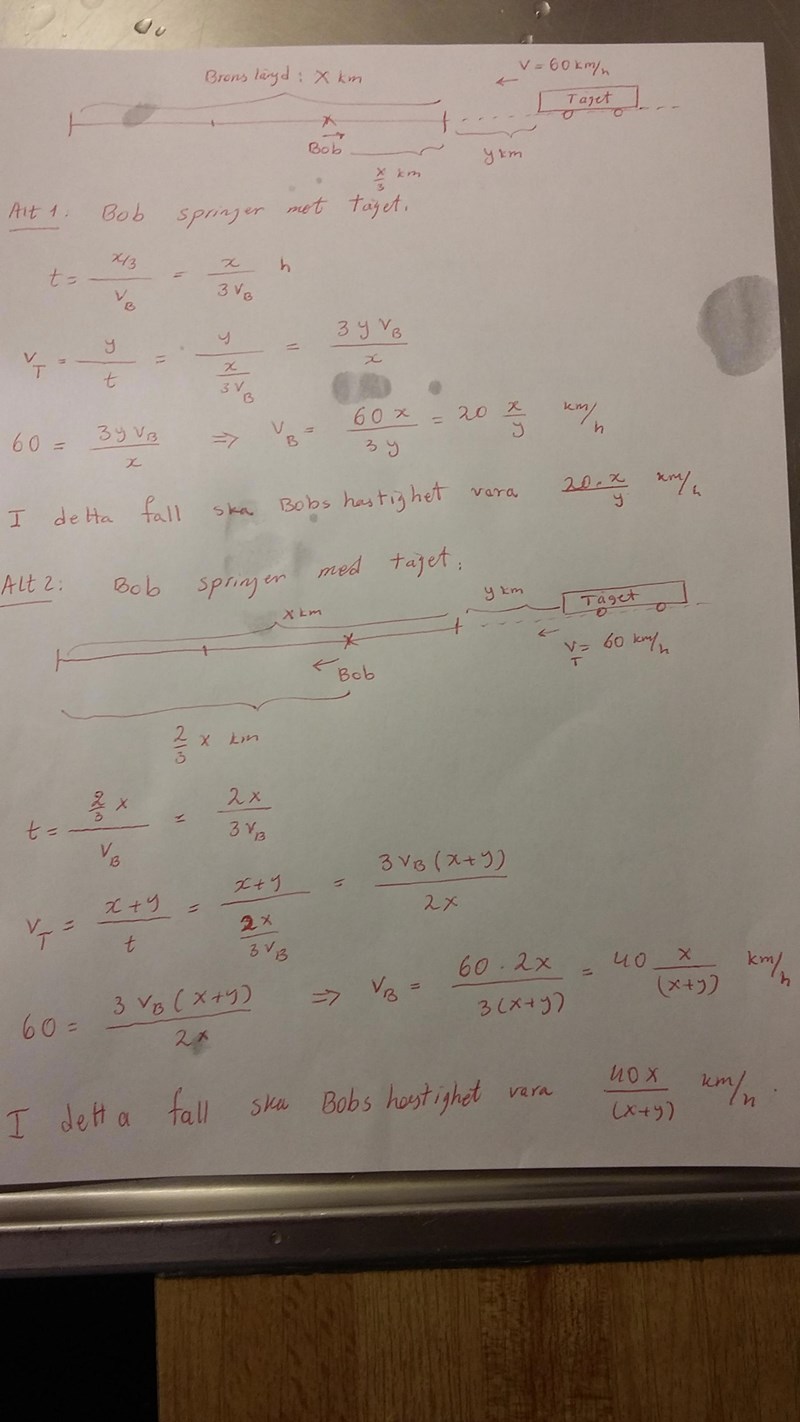 Brons längd : X km
V = 60 km/h
Tåget
Bob
x/3 km
y km
Alt 1: Bob springer mot tåget.
t = (x/3)/V_B = x/(3V_B) h
V_T = y/t = y/(x/(3V_B)) = 3yV_B/x
60 = 3yV_B/x => V_B = 60x/3y = 20 x/y km/h
I detta fall ska Bobs hastighet vara 20·x/y km/h
Alt 2: Bob springer med tåget:
x km
y km
Tåget
V_T = 60 km/h
Bob
2/3 x km
t = (2/3 x)/V_B = 2x/(3V_B)
V_T = (x+y)/t = (x+y)/(2x/(3V_B)) = 3V_B(x+y)/2x
60 = 3V_B(x+y)/2x => V_B = 60·2x/3(x+y) = 40 x/(x+y) km/h
I detta fall ska Bobs hastighet vara 40x/(x+y) km/h.